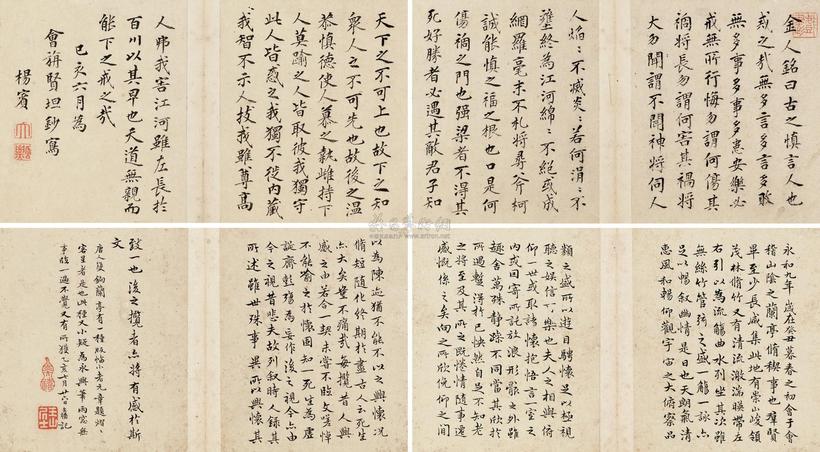 金人銘曰古之慎言人也
戒之哉無多言多言多敗
無多事多事多患安樂必
戒無所行悔勿謂何傷其
禍將長勿謂何害其禍將
大勿聞謂不聞神將伺人
人焰焰不滅炎炎若何涓涓不
壅終為江河綿綿不絕或成
網羅毫末不札將尋斧柯
誠能慎之福之根也口是何
傷禍之門也强梁者不得其
死好勝者必遇其敵君子知
天下之不可上也故下之知
衆人之不可先也故後之温
恭慎德使人慕之執雌持下
人莫踰之人皆取彼我獨守
此人皆惑之我獨不從内藏
我智不示人技我雖尊高
人弗我害江河雖左長於
百川以其卑也天道無親而
能下之戒之哉
己亥六月為
會旃賢坦鈔寫
楊賓
永和九年歲在癸丑暮春之初會于會
稽山陰之蘭亭脩稧事也羣賢
畢至少長咸集此地有崇山峻領
茂林脩竹又有清流激湍暎帶左
右引以為流觴曲水列坐其次雖
無絲竹管弦之盛一觴一詠亦
足以暢叙幽情是日也天朗氣清
惠風和暢仰觀宇宙之大俯察品
類之盛所以遊目騁懷足以極視
聽之娱信可樂也夫人之相與俯
仰一世或取諸懷抱悟言一室之
内或因寄所託放浪形骸之外雖
趣舍萬殊静躁不同當其欣於
所遇蹔得於己快然自足不知老
之將至及其所之既惓情隨事遷
感慨係之矣向之所欣俛仰之間
以為陳迹猶不能不以之興懷况
脩短隨化終期於盡古人云死生
亦大矣豈不痛哉每攬昔人興
感之由若合一契未嘗不臨文嗟悼
不能喻之於懷固知一死生為虚
誕齊彭殤為妄作後之視今亦由
今之視昔悲夫故列叙時人録其
所述雖世殊事異所以興懷其
致一也後之攬者亦將有感於斯
文